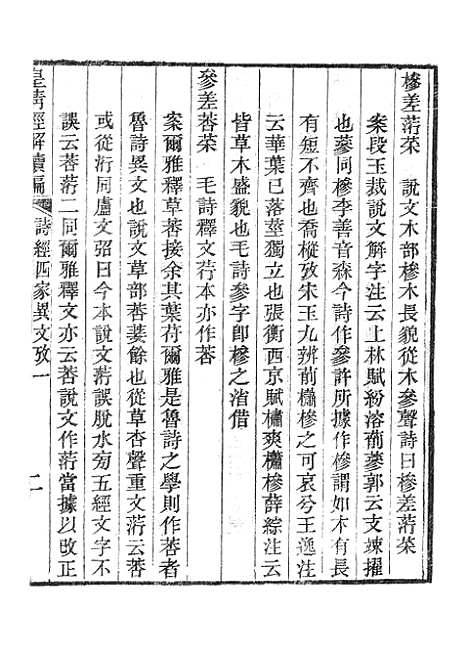 槮差荇菜　說文木部槮木長貌從木參聲詩曰槮差荇菜
案段玉裁說文解字注云上林賦紛溶萷蔘郭云支竦擢
也蔘同槮李善音森今詩作參許所據作槮謂如木有長
有短不齊也喬樅攷宋玉九辨萷櫹槮之可哀兮王逸注
云華葉已落莖獨立也張衡西京賦橚爽櫹槮薛綜注云
皆草木盛貌也毛詩參字卽槮之渻借
參差荅菜　毛詩釋文荇本亦作莕
案爾雅釋草莕接余其葉苻爾雅是魯詩之學則作莕者
魯詩異文也說文草部莕菨餘也從草杏聲重文荇云莕
或從洐同盧文弨曰今本說文荇誤脫水㫄五經文字不
誤云莕荇二同爾雅釋文亦云莕說文作荇當據以改正
皇淸經解續編　詩經四家異文攷一　二